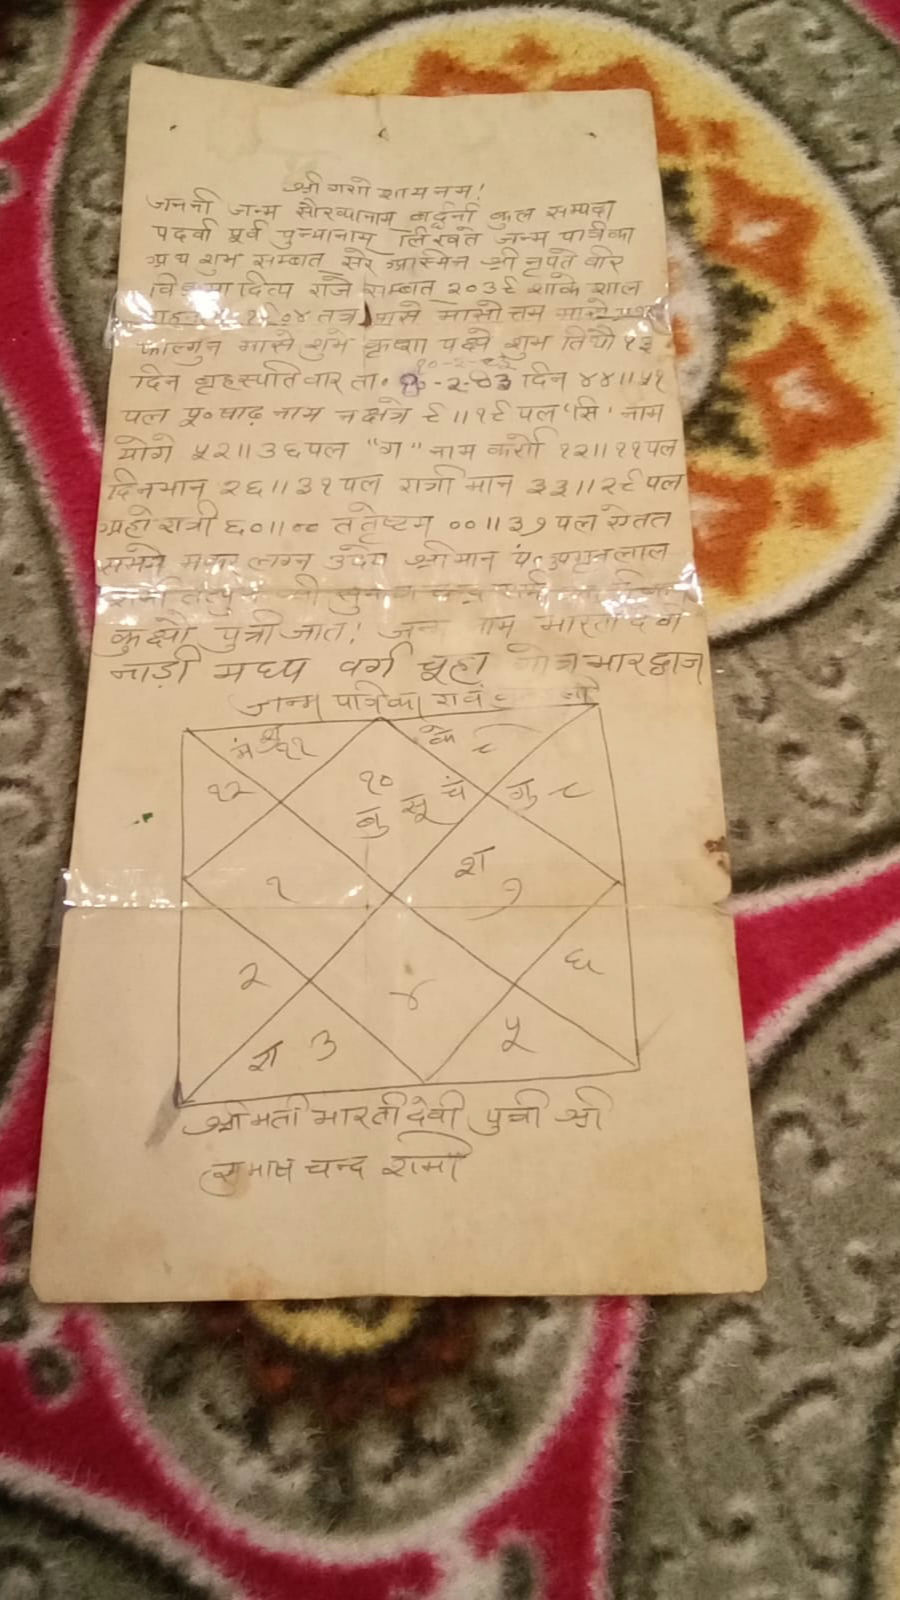 श्री गणे शाय नम!
जननी जन्म सौख्यानाम् वर्द्धनी कुल सम्पदा
पदवी पूर्व पुन्यानाम् लिखते जन्म पत्रिका
अथ शुभ सम्बत् सरे अस्मिन श्री नृपते वीर
दित्य राजे सम्बत् २०३९ शाके शाल
१९०४ तत्र मासे मासोत्तम मासे
फाल्गुन मासे शुभे कृष्णा पक्षे शुभ तिथौ १३
दिन बृहस्पतिवार ता० १०-२-८३ दिन ४४॥५१
पल पू०षाढ़ नाम नक्षत्रे ९॥१९ पल "सि" नाम
योगे ५२॥३६ पल "ग" नाम कर्णे १२॥११ पल
दिनमान २६॥३१ पल रात्री मान ३३॥२९ पल
अहो रात्री ६०॥०० ततेष्टम ००॥३७ पल ऐतत
समये मकर लग्न उदय श्रीमान पं० लाल
कुक्षौ पुत्री जात! जन्म नाम भारती देवी
नाड़ी मध्य वर्ग चूहा गोत्र भारद्वाज
जन्म पत्रिका
मं शु ११
के ९
१२
१०
बु सू चं
गु ८
१
श ७
२
४
६
रा ३
५
श्रीमती भारती देवी पुत्री श्री
सुभाष चन्द शर्मा